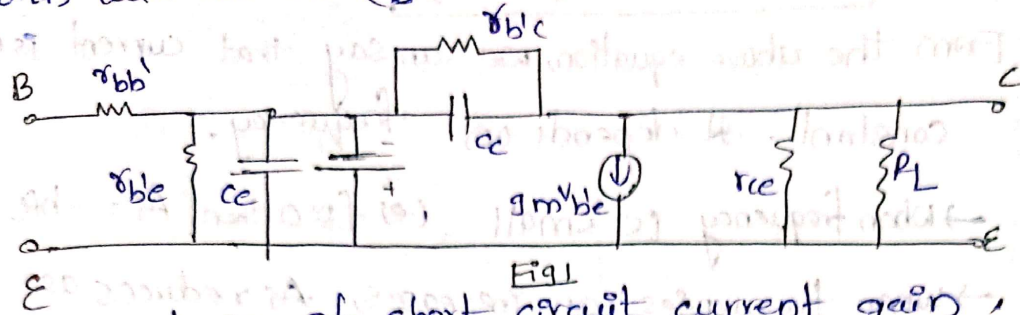 rb'c
B
rbb'
C
Cc
rb'e
Ce
-
+
gmVb'e
rce
RL
E
Fig1
E
of short circuit current gain,